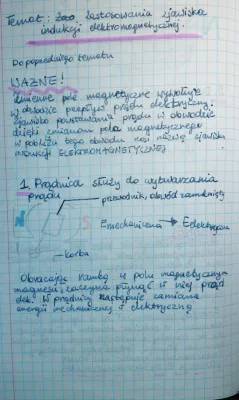 Temat: Zastosowania zjawiska
indukcji elektromagnetycznej.
Do poprzedniego tematu
WAŻNE!
Zmienne pole magnetyczne wytwarza
w obwodzie przepływ prądu elektrycznego.
Zjawisko powstawania prądu w obwodzie
dzięki zmianom pola magnetycznego
w pobliżu tego obwodu nosi nazwę zjawiska
indukcji ELEKTROMAGNETYCZNEJ
1. Prądnica służy do wytwarzania
prądu
przewodnik, obwód zamknięty
Emechaniczna → Eelektryczna
korba
Obracając ramką w polu magnetycznym
magnesu, zaczyna płynąć w niej prąd
elek. W prądnicy następuje zamiana
energii mechanicznej w elektryczną